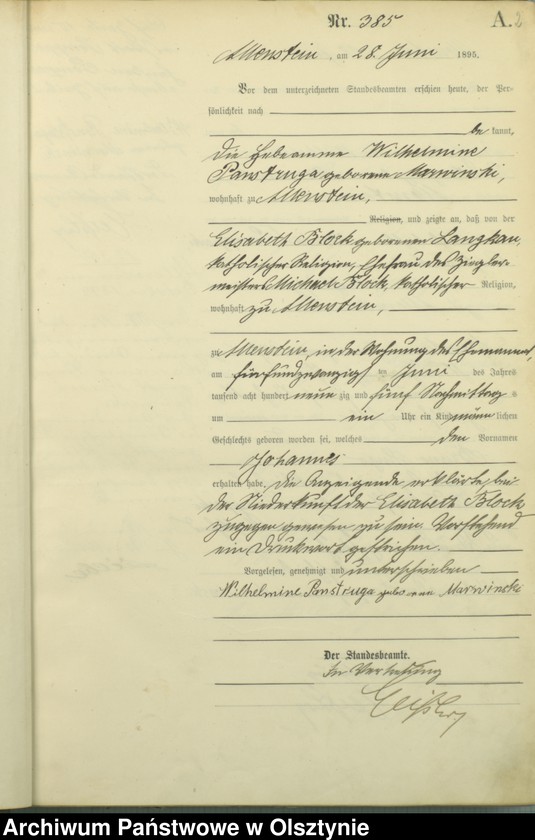 Nr. 385
A. 2
Allenstein, am 28. Juni 1895.
Vor dem unterzeichneten Standesbeamten erschien heute, der Per-
sönlichkeit nach
be kannt,
die Hebeamme Wilhelmine
Panstruga geborene Marwinski,
wohnhaft zu Allenstein,
Religion, und zeigte an, daß von der
Elisabeth Block geborenen Langkau,
katholischer Religion, Ehefrau des Ziegler-
meisters Michael Block, katholischer Religion,
wohnhaft zu Allenstein,
zu Allenstein, in der Wohnung des Ehemannes,
am fünfundzwanzigsten Juni des Jahres
tausend acht hundert neunzig und fünf Nachmittags
um ein Uhr ein Kind männlichen
Geschlechts geboren worden sei, welches den Vornamen
Johannes
erhalten habe. Die Anzeigende erklärte, bei
der Niederkunft der Elisabeth Block
zugegen gewesen zu sein. Vorstehend
ein Druckwort gestrichen.
Vorgelesen, genehmigt und unterschrieben
Wilhelmine Panstruga geborene Marwinski
Der Standesbeamte.
In Vertretung
Archiwum Państwowe w Olsztynie